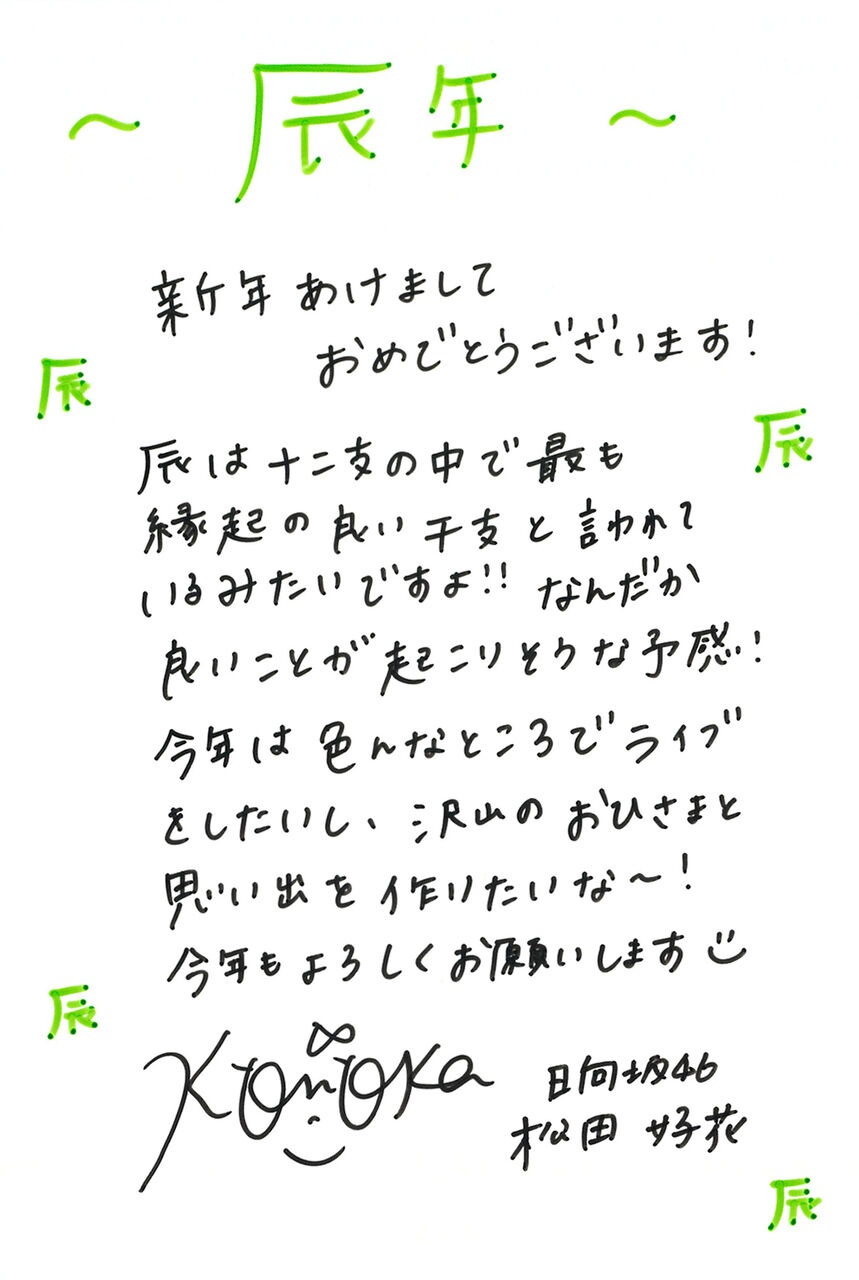 ～ 辰年 ～
新年 あけまして
おめでとうございます!
辰
辰
辰は十二支の中で最も
縁起の良い干支と言われて
いるみたいですよ!! なんだか
良いことが起こりそうな予感!
今年は色んなところでライブ
をしたいし、沢山のおひさまと
思い出を作りたいな～!
今年もよろしくお願いします
辰
Konoka
日向坂46
松田 好花
辰